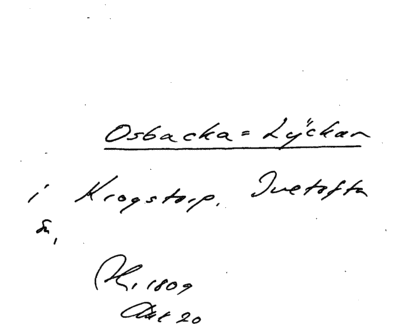 Osbacka = Lÿckan
i Krogstorp. Ivetofta
sn,
1809
Akt 20